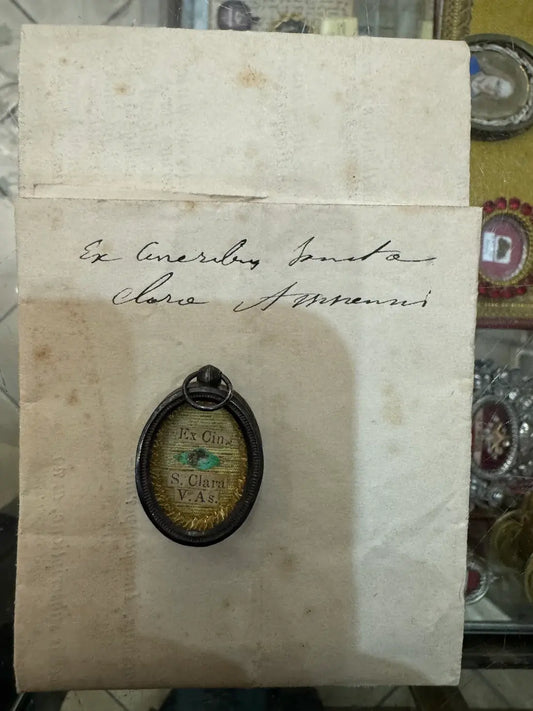 Ex Cineribus Sanctæ
Claræ Assisiensis
Ex Cin.
S. Clara
V. As.